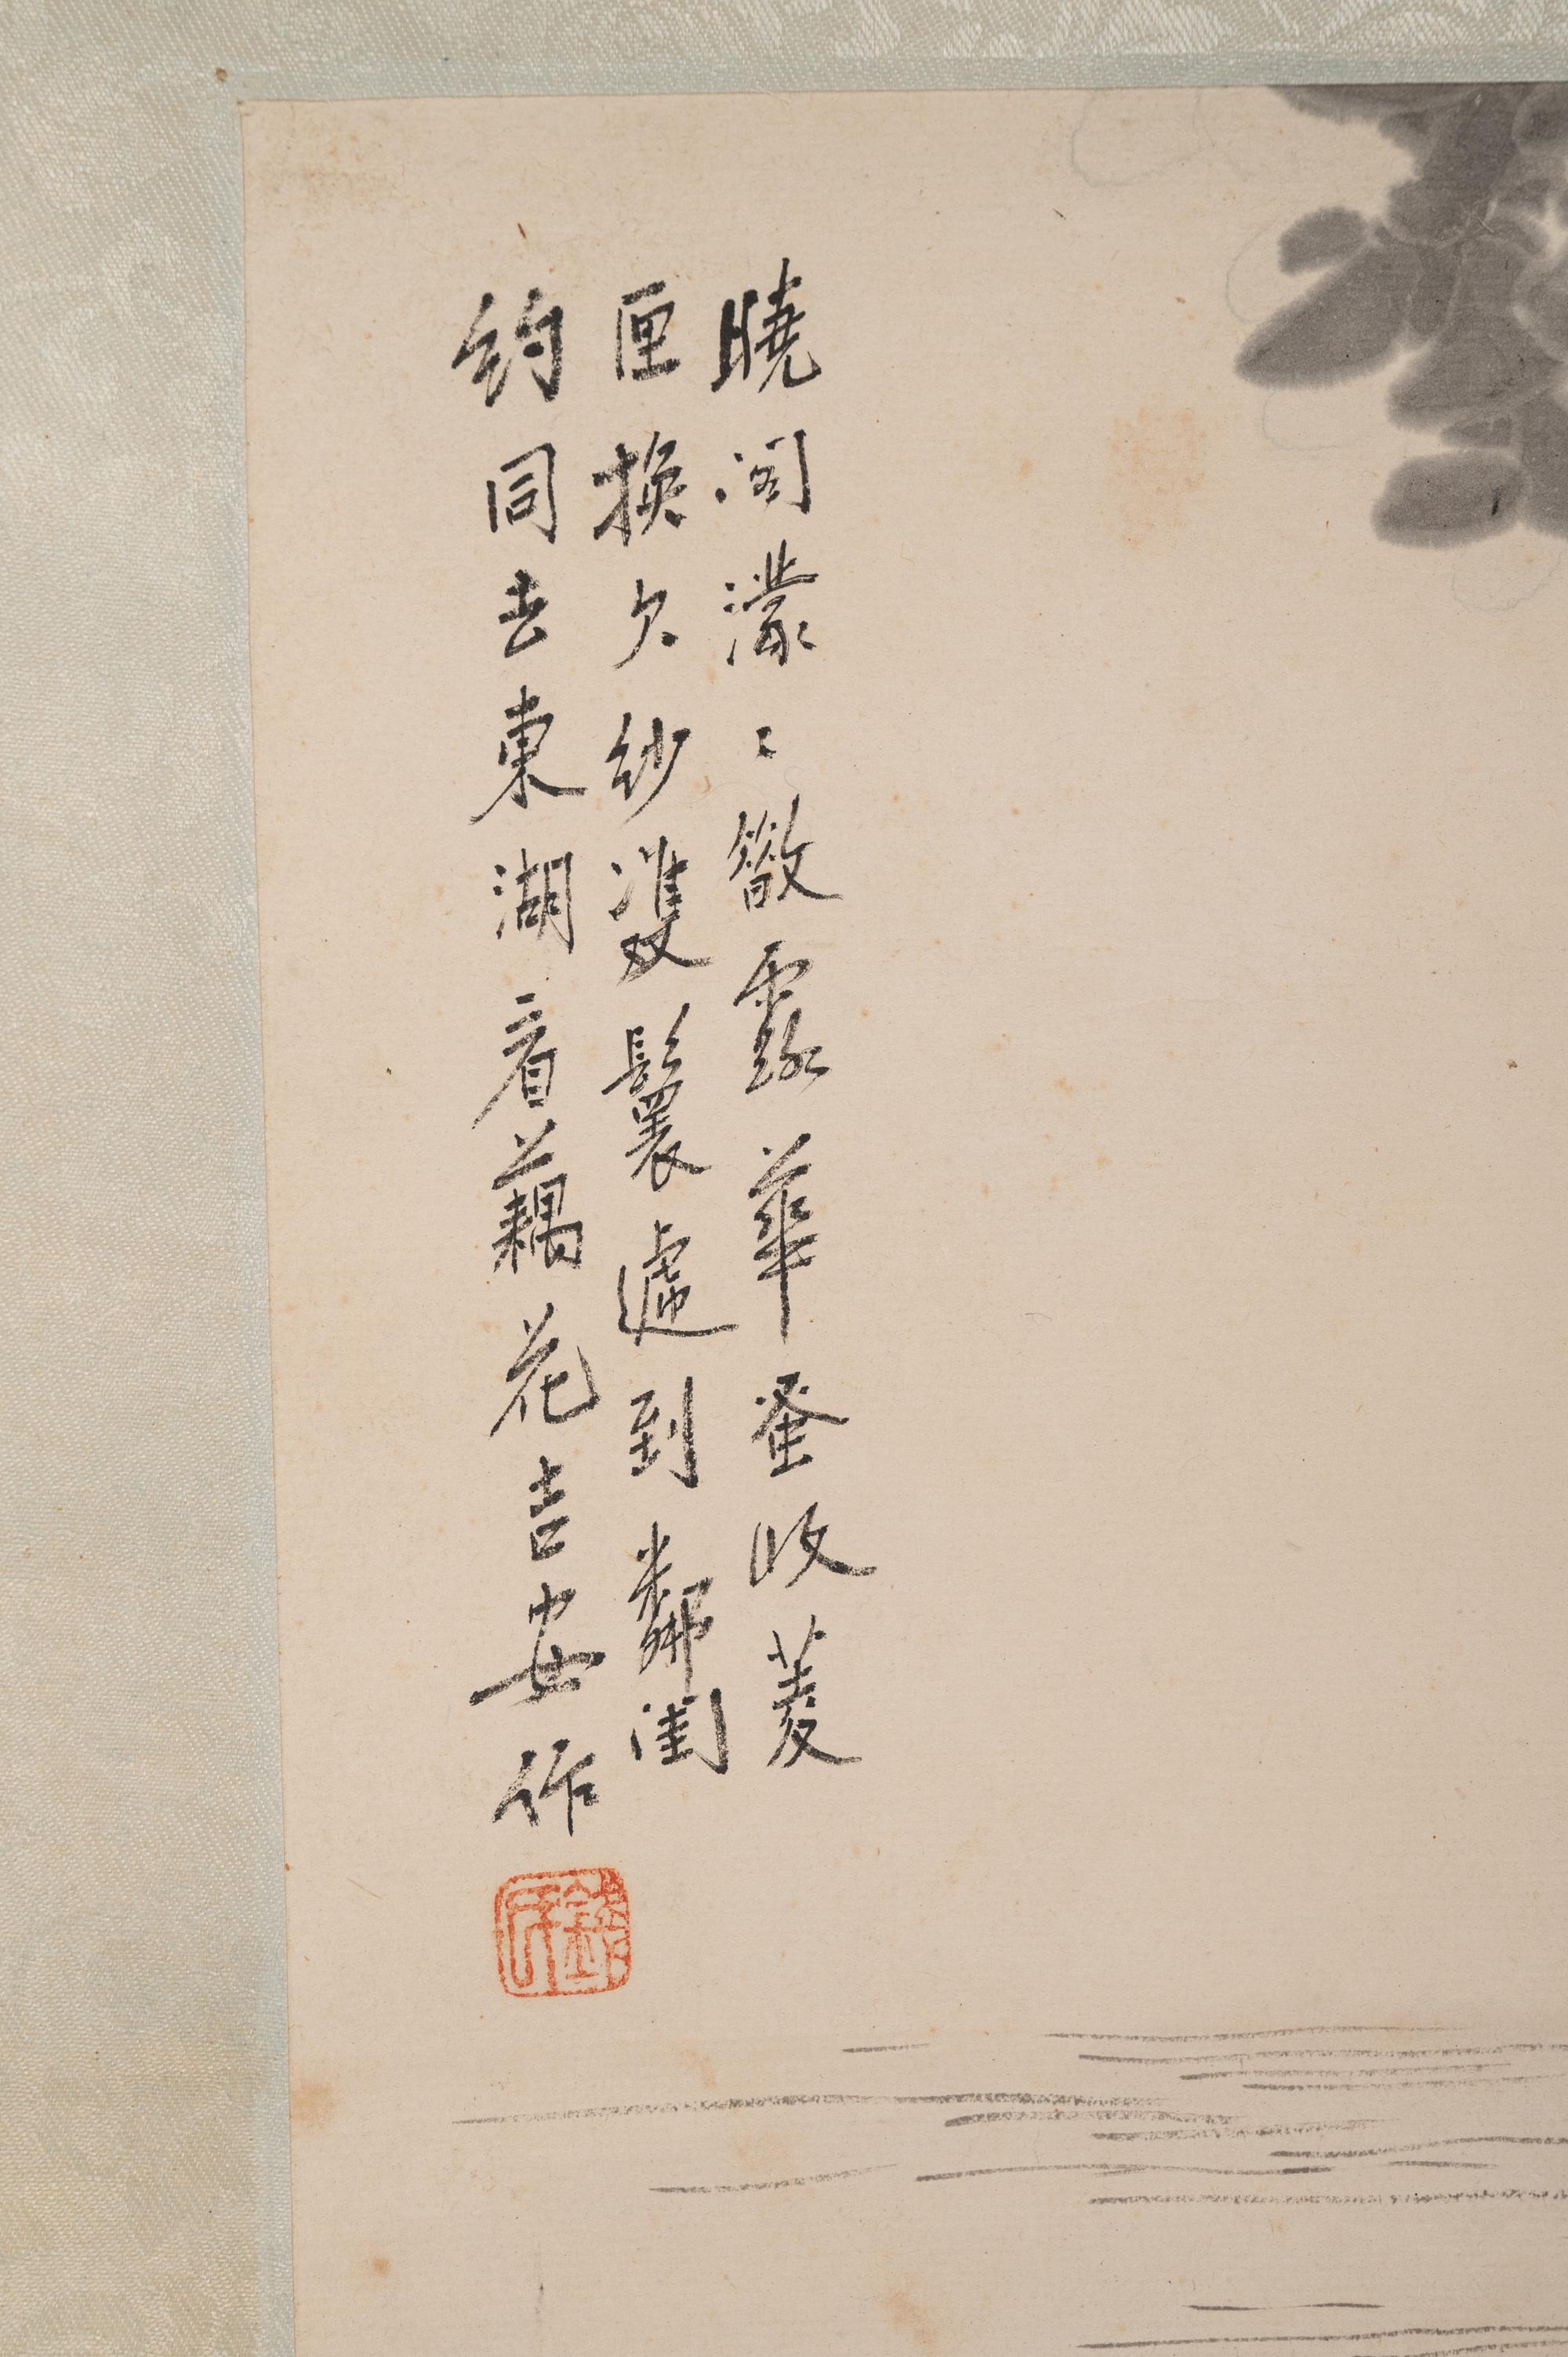 曉閣濛〻斂露華蚤收菱
匣換欠紗雙鬟遞到鄰閨
約同去東湖看藕花吉安作